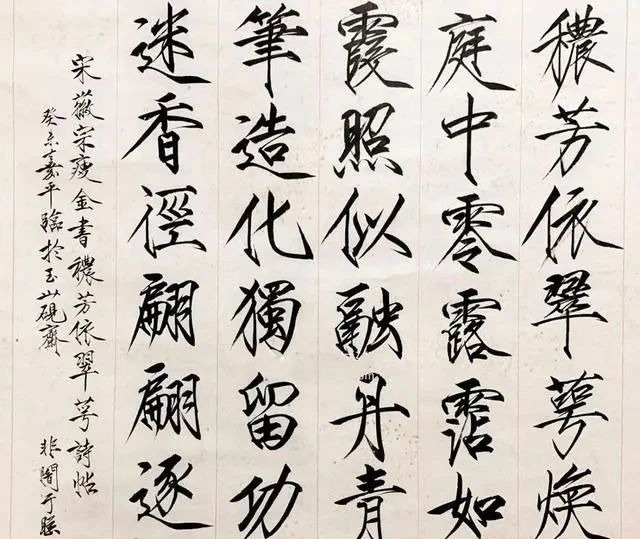 穠芳依翠萼煥
庭中零露霑如
霞照似融丹青
筆造化獨留功
迷香徑翩翩逐
宋徽宗瘦金書穠芳依翠萼詩帖
癸未嘉平臨於玉山硯齋 非闇于照